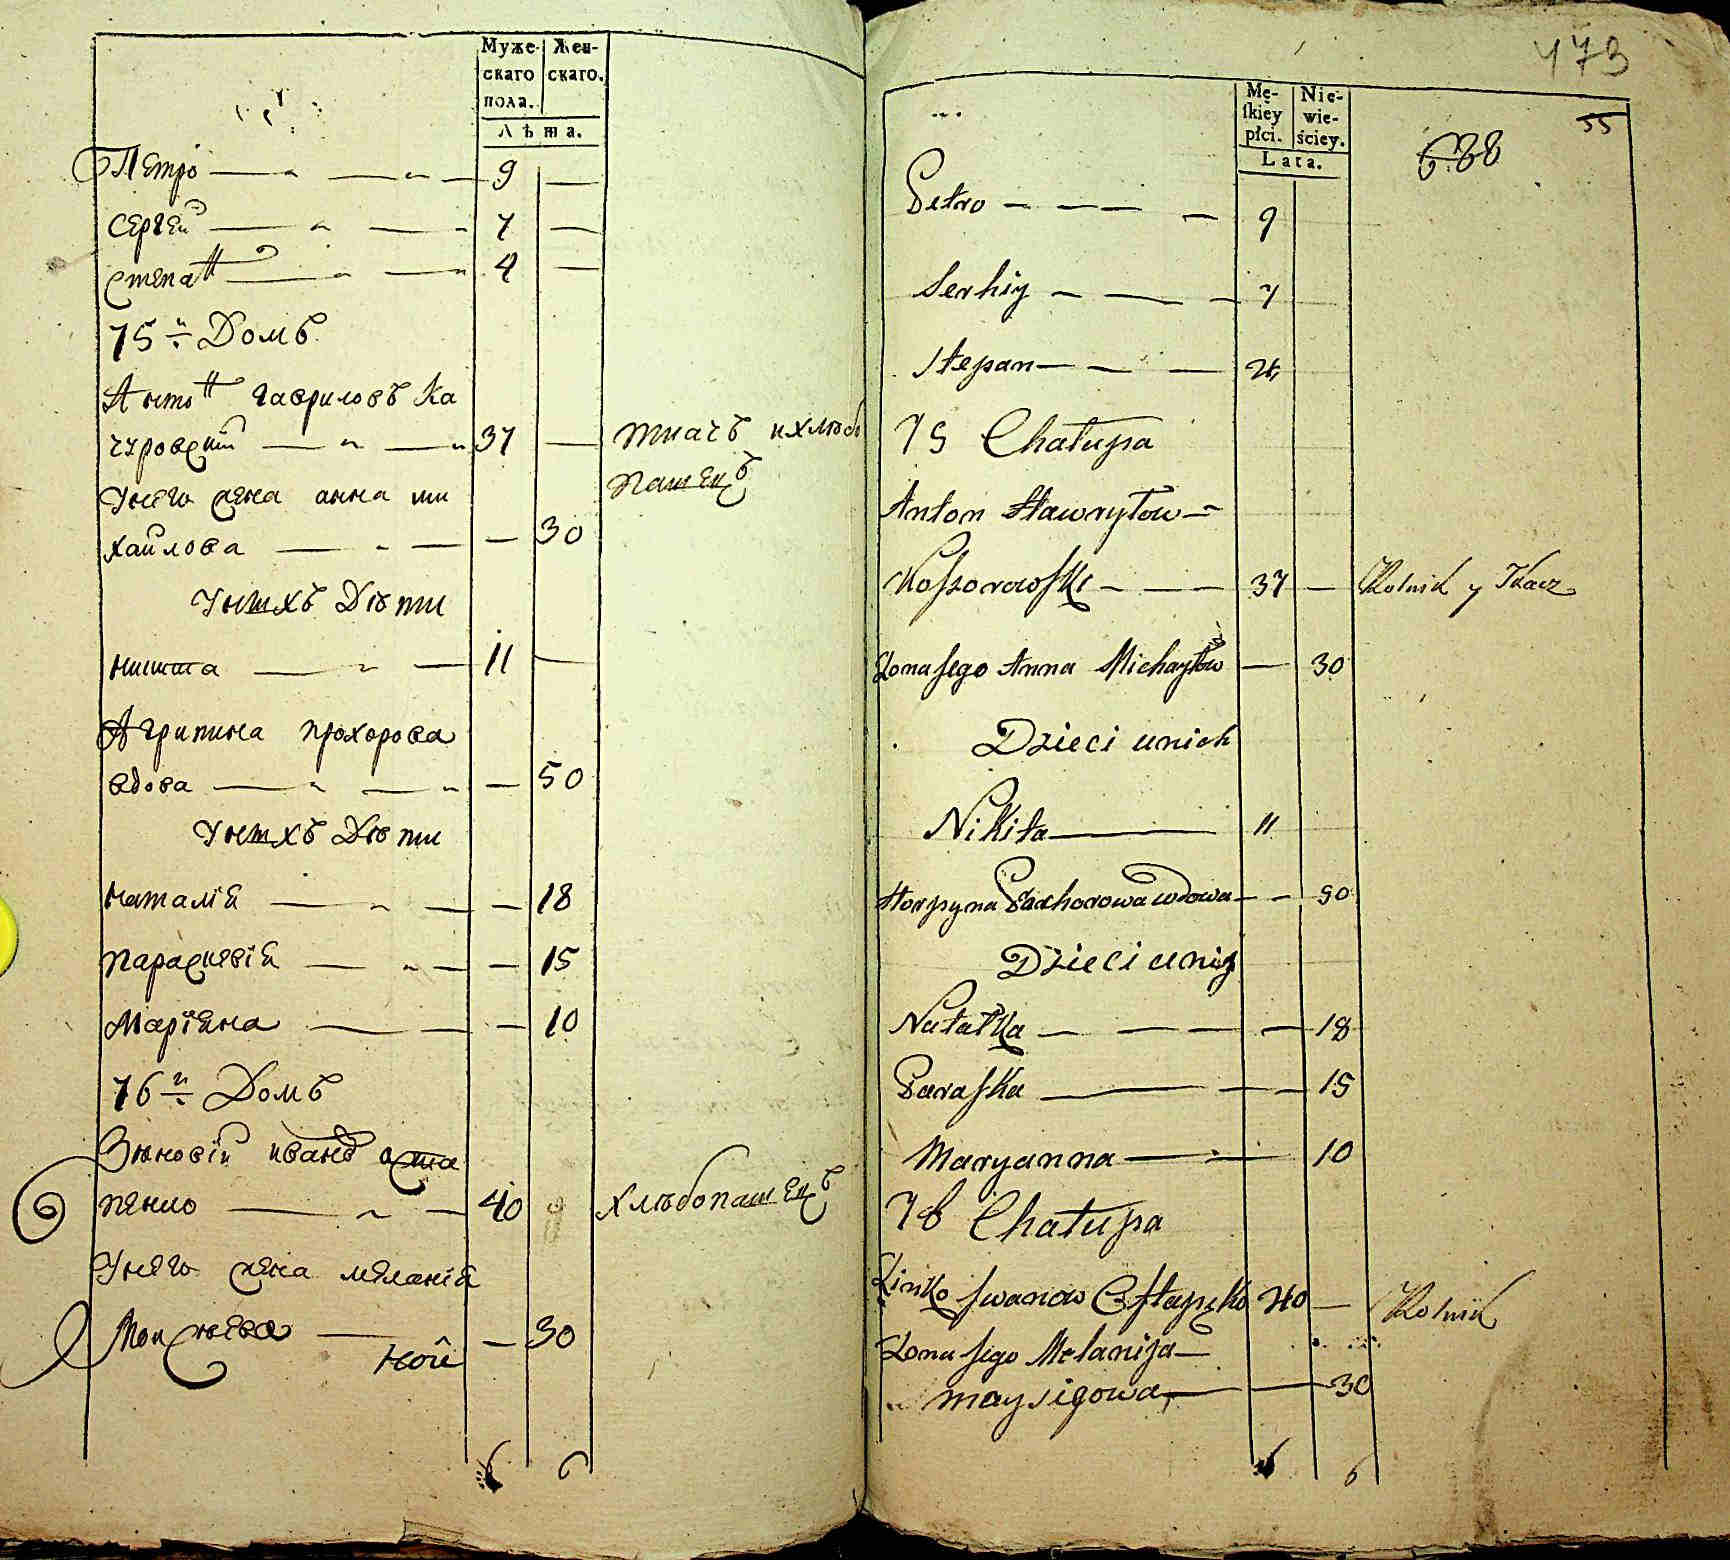 Муже-
скаго
пола.
Жен-
скаго.
Лѣта.
Петро — — 9 —
Сергей — — 7 —
Степан — — 4 —
75й Домъ
Антон Гавриловъ Ка
чуровский — — 37 — ткачъ и хлебо
пашецъ
У него жена анна ми
хайлова — — — 30
У нихъ Дѣти
никита — — 11 —
Агрипина прохорова
вдова — — — 50
У нихъ Дѣти
наталія — — — 18
параскевія — — — 15
Маріяна — — — 10
76й Домъ
Зѣновій иванов аста
пенко — — 40 хлѣбопашецъ
У него жена меланія
— — 30
6 6
473
55
Mę-
ſkiey
płci.
Nie-
wie-
ściey.
Lata.
688
Petro — — — 9
Serhiy — — — 7
Stepan — — — 4
75 Chałupa
Anton Hawryłow —
— — — 37 — Rolnik y Tkacz
Żona jego Anna Michayłow — 30
Dzieci u nich
Nikita — 11
Horpyna Prochorowa wdowa — — 50
Dzieci u niej
Natałka — — — — 18
Paraſka — — — 15
Maryanna — — 10
76 Chałupa
Zinko Jwanow Oſtapęko 40 — Rolnik
Żona jego Melanija —
— — 30
6 6